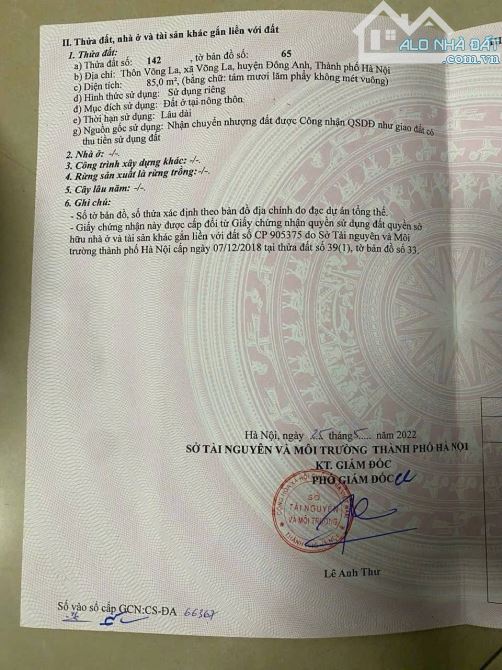 ALO NHÀ ĐẤT
II. Thửa đất, nhà ở và tài sản khác gắn liền với đất
1. Thửa đất:
a) Thửa đất số: 142 , tờ bản đồ số: 65
b) Địa chỉ: Thôn Võng La, xã Võng La, huyện Đông Anh, Thành phố Hà Nội
c) Diện tích: 85,0 m², (bằng chữ: tám mươi lăm phẩy không mét vuông)
d) Hình thức sử dụng: Sử dụng riêng
đ) Mục đích sử dụng: Đất ở tại nông thôn
e) Thời hạn sử dụng: Lâu dài
g) Nguồn gốc sử dụng: Nhận chuyển nhượng đất được Công nhận QSDĐ như giao đất có
thu tiền sử dụng đất
2. Nhà ở: -/-.
3. Công trình xây dựng khác: -/-.
4. Rừng sản xuất là rừng trồng: -/-.
5. Cây lâu năm: -/-.
6. Ghi chú:
- Số tờ bản đồ, số thửa xác định theo bản đồ địa chính đo đạc dự án tổng thể.
- Giấy chứng nhận này được cấp đổi từ Giấy chứng nhận quyền sử dụng đất quyền sở
hữu nhà ở và tài sản khác gắn liền với đất số CP 905375 do Sở Tài nguyên và Môi
trường thành phố Hà Nội cấp ngày 07/12/2018 tại thửa đất số 39(1), tờ bản đồ số 33.
Hà Nội, ngày 25 tháng 5 .... năm 2022
SỞ TÀI NGUYÊN VÀ MÔI TRƯỜNG THÀNH PHỐ HÀ NỘI
KT. GIÁM ĐỐC
PHÓ GIÁM ĐỐC
SỞ
TÀI NGUYÊN
VÀ MÔI TRƯỜNG
Lê Anh Thư
Số vào sổ cấp GCN:CS-ĐA 66367